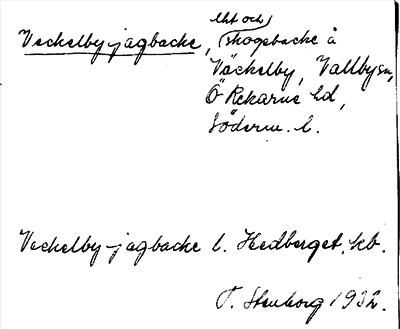 Veckelby-jagbacke, skogsbacke å
Väckelby, Vallby sn,
Ö Rekarne hd,
Söderm. l.
Veckelby-jagbacke l. Hedberget, kb.
T. Stenborg 1932.